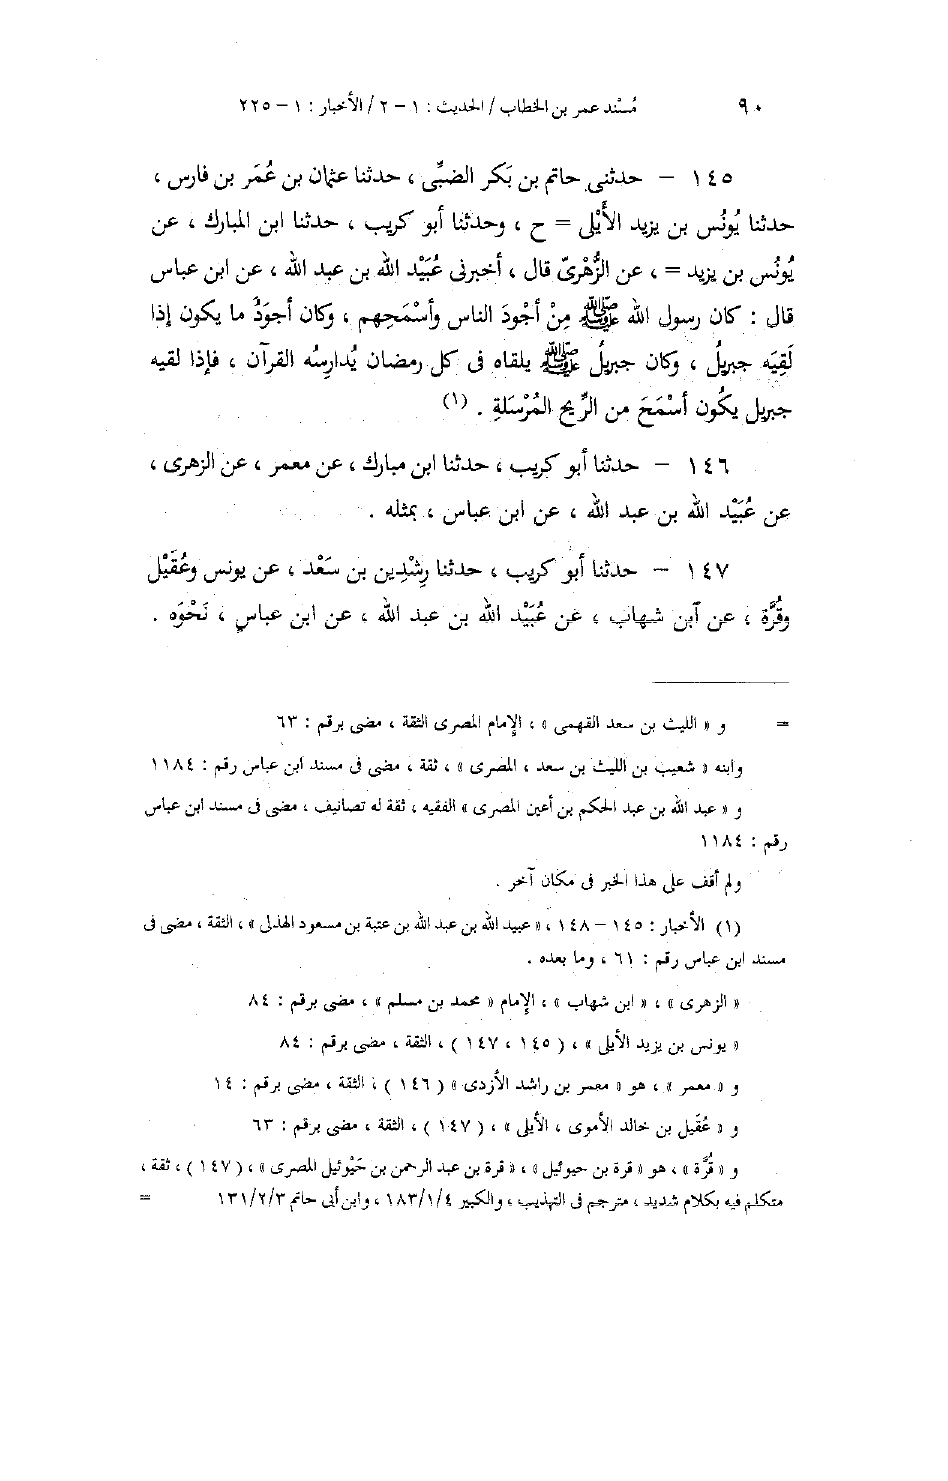 ٩٠ مُسْند عمر بن الخطاب / الحديث : ١ - ٢ / الأخبار : ١ - ٢٢٥
١٤٥ - حدثنى حاتم بن بَكر الضبِّى ، حدثنا عثمان بن عُمَر بن فارس ،
حدثنا يُونُس بن يزيد الأَيْلى = ح ، وحدثنا أبو كريب ، حدثنا ابن المبارك ، عن
يُونُس بن يزيد = ، عن الزُّهْرىّ قال ، أخبرنى عُبَيْد الله بن عبد الله ، عن ابن عباس
قال : كان رسول الله ﷺ مِنْ أجْودَ الناس وأسْمَحِهم ، وكان أجوَدُ ما يكون إذا
لَقِيَه جبريلُ ، وكان جبريلُ ﷺ يلقاه فى كل رمضان يُدارِسُه القرآن ، فإذا لقيه
جبريل يكُون أسْمَحَ من الرِّيح المُرْسَلَةِ . (١)
١٤٦ - حدثنا أبو كريب ، حدثنا ابن مبارك ، عن معمر ، عن الزهرى ،
عن عُبَيْد الله بن عبد الله ، عن ابن عباس ، بمثله .
١٤٧ - حدثنا أبو كريب ، حدثنا رِشْدِين بن سَعْد ، عن يونس وعُقَيْل
وقُرَّة ، عن آبن شهاب ، عن عُبَيْد الله بن عبد الله ، عن ابن عباسٍ ، نَحْوَه .
= و « الليث بن سعد الفهمى » ، الإمام المصرى الثقة ، مضى برقم : ٦٣
وابنه « شعيب بن الليث بن سعد ، المصرى » ، ثقة ، مضى فى مسند ابن عباس رقم : ١١٨٤
و « عبد الله بن عبد الحكم بن أعين المصرى » الفقيه ، ثقة له تصانيف ، مضى فى مسند ابن عباس
رقم : ١١٨٤
ولم أقف على هذا الخبر فى مكان آخر .
(١) الأخبار : ١٤٥ - ١٤٨ ، « عبيد الله بن عبد الله بن عتبة بن مسعود الهذلى » ، الثقة ، مضى فى
مسند ابن عباس رقم : ٦١ ، وما بعده .
« الزهرى » ، « ابن شهاب » ، الإمام « محمد بن مسلم » ، مضى برقم : ٨٤
« يونس بن يزيد الأيلى » ، ( ١٤٥ ، ١٤٧ ) ، الثقة ، مضى برقم : ٨٤
و « معمر » ، هو « معمر بن راشد الأزدى » ( ١٤٦ ) ، الثقة ، مضى برقم : ١٤
و « عُقَيل بن خالد الأموى ، الأيلى » ، ( ١٤٧ ) ، الثقة ، مضى برقم : ٦٣
و « قُرَّة » ، هو « قرة بن حيوئيل » ، « قرة بن عبد الرحمن بن حَيْوئيل المصرى » ، ( ١٤٧ ) ، ثقة ،
متكلم فيه بكلام شديد ، مترجم فى التهذيب ، والكبير ١٨٣/١/٤ ، وابن أبى حاتم ١٣١/٢/٣ =